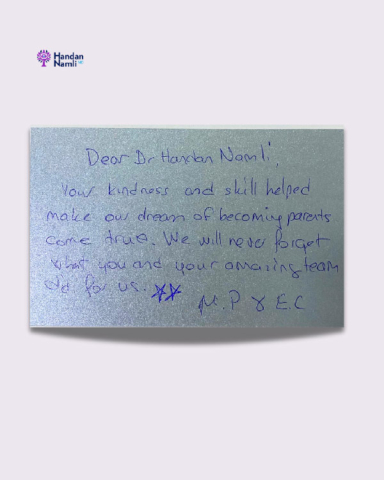 Handan
Namlı
Dear Dr Handan Namli,
Your kindness and skill helped
make our dream of becoming parents
come true. We will never forget
what you and your amazing team
did for us.
M.P & E.C